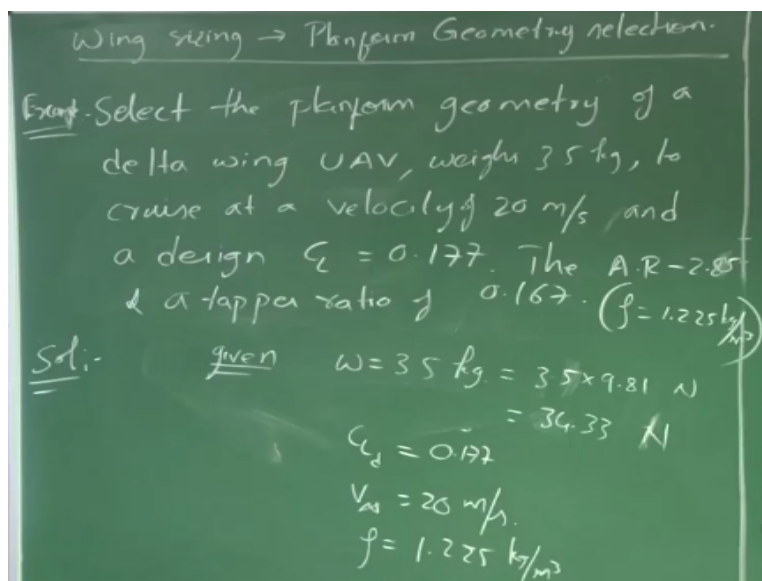 Wing sizing → Planform Geometry selection.
Examp. Select the planform geometry of a
delta wing UAV, weighs 3.5 kg, to
cruise at a velocity of 20 m/s and
a design CL = 0.177. The A.R - 2.85
& a tapper ratio of 0.167. (ρ = 1.225 kg/m³)
Sol:- given W = 3.5 kg = 3.5×9.81 N
= 34.33 N
CLd = 0.177
V∞ = 20 m/s.
ρ = 1.225 kg/m³